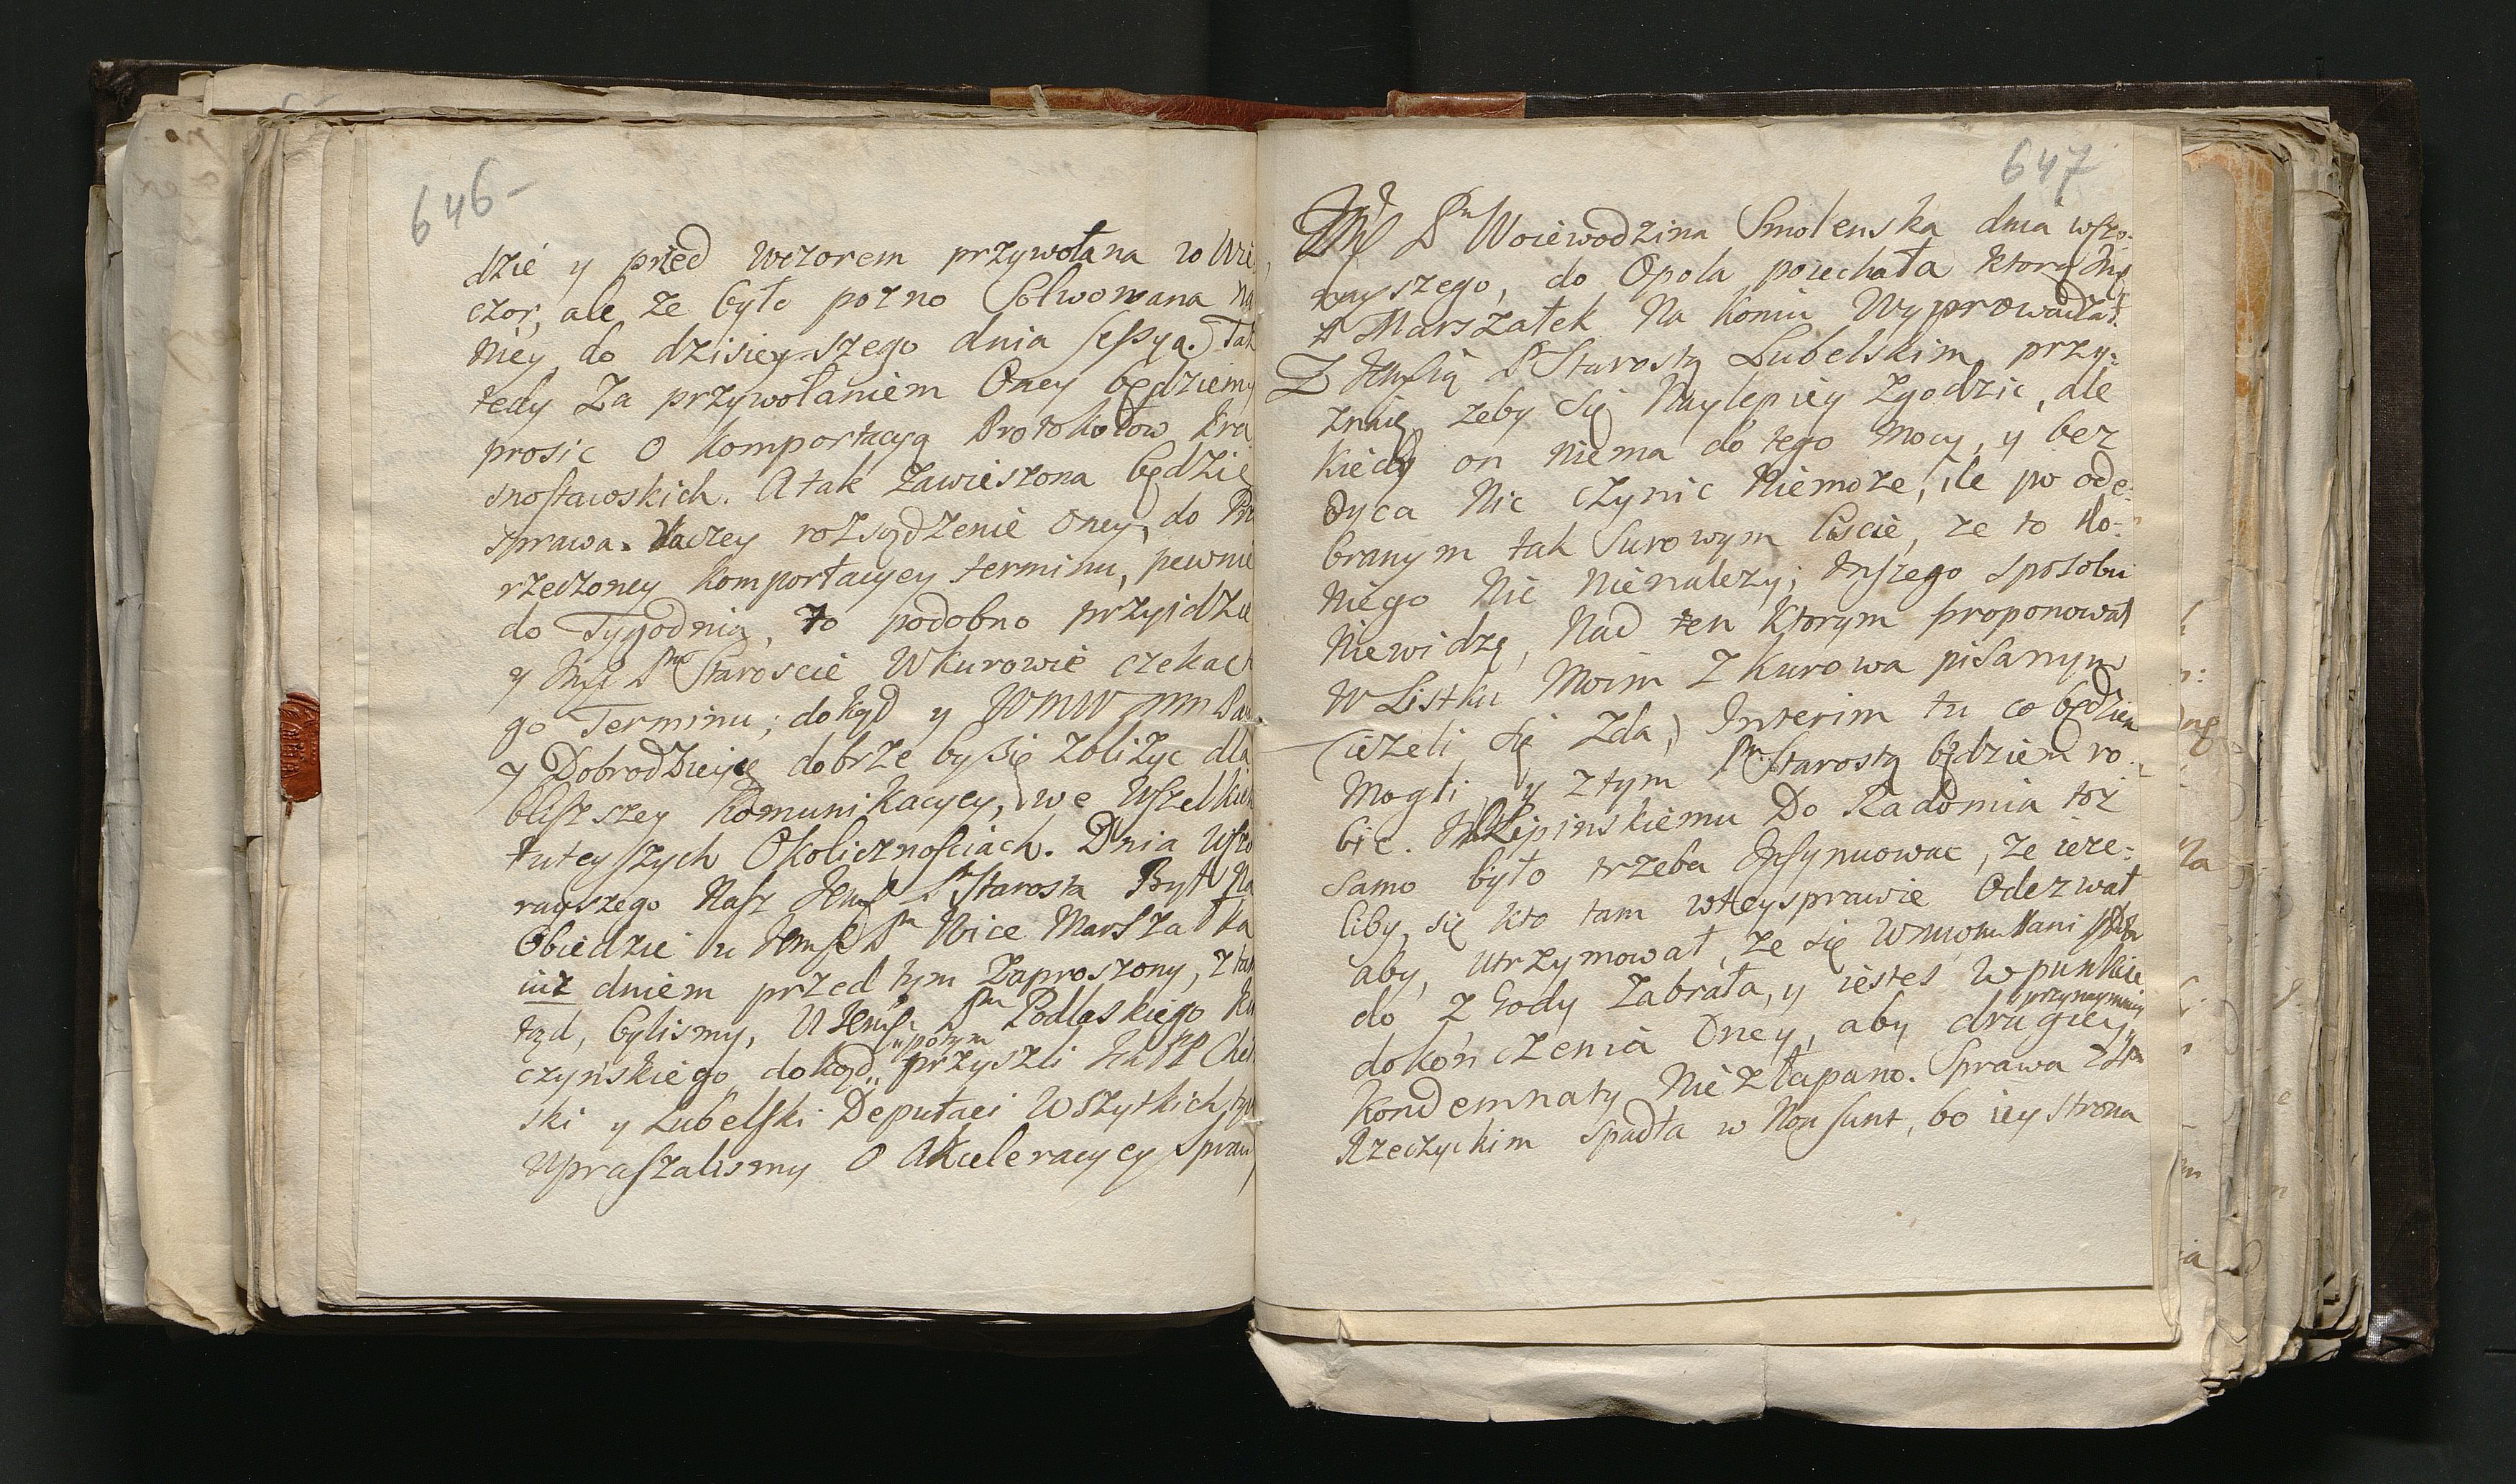 646-
dzie y przed wczorem przywołana w Wie
czor, ale ze było pozno Solwowana na
niey do dzisieyszego dnia sessya. Tak
tedy Za przywołaniem Oney będziemy
prosic O komportacyą Protokołow Kra
snostawskich. A tak zawieszona będzie
sprawa. raczey rozsądzenie oney, do Prze
rzeczoney komportacyey terminu, pewnie
do Tygodnia, to podobno przyidzie
y Jmć Pnu Staroscie W Kurowie czekac te
go Terminu; dokąd y WMW mm Pan
y Dobrodzieyce dobrze by się zbliżyc dla
bliszszey Komunikacyey, we wszelkich
tuteyszych Okolicznosciach. Dnia wczo
rayszego Nasz Jemć P Starosta Był Na
Obiedzie u Jemć Pn Wice Marszałka
iuz dniem przed tym Zaproszony, z tam
tąd, bylismy, U Jemć Pn Podlaskiego Ku
czyńskiego, dokąd potym przyszli Ich PP Cheł
ski y Lubelski Deputaci Wszytkich, tych
upraszalismy O Akceleracycy spraw
647
Jmć Pn Woiewodzina Smolenska dnia wczo-
rayszego, do Opola poiechała ktorą Jmć
P Marszałek Na koniu Wyprowadzał.
Z Jemścią P Starostą Lubelskim przy-
znaię zeby się Naylepiey Zgodzic, ale
kiedy on niema do tego mocy, y bez
Oyca Nic czynic Niemoze, ile po ode-
branym tak Surowym liscie, ze to do
Niego Nic nienalezy; inszego sposobu
Niewidzę, Nad ten Ktorym proponował
W Listku Moim Z Kurowa pisanym
(iezeli się zda,) Interim tu co będziem
Mogli y z tym Pn Starostą będziem ro-
bic. Lipinskiemu Do Radomia toz
samo było trzeba Insynuowac, ze ieze-
liby się kto tam w tey sprawie Odezwał
aby, utrzymował, ze się Wmm Pani Dobr
do Zgody zabrała, y iestes w punkcie
dokończenia Oney, aby drugiey przynaymniey
Kondemnaty Nie złapano. Sprawa z Pn
Rzeczyckim spadła w Non sunt, bo iey strona